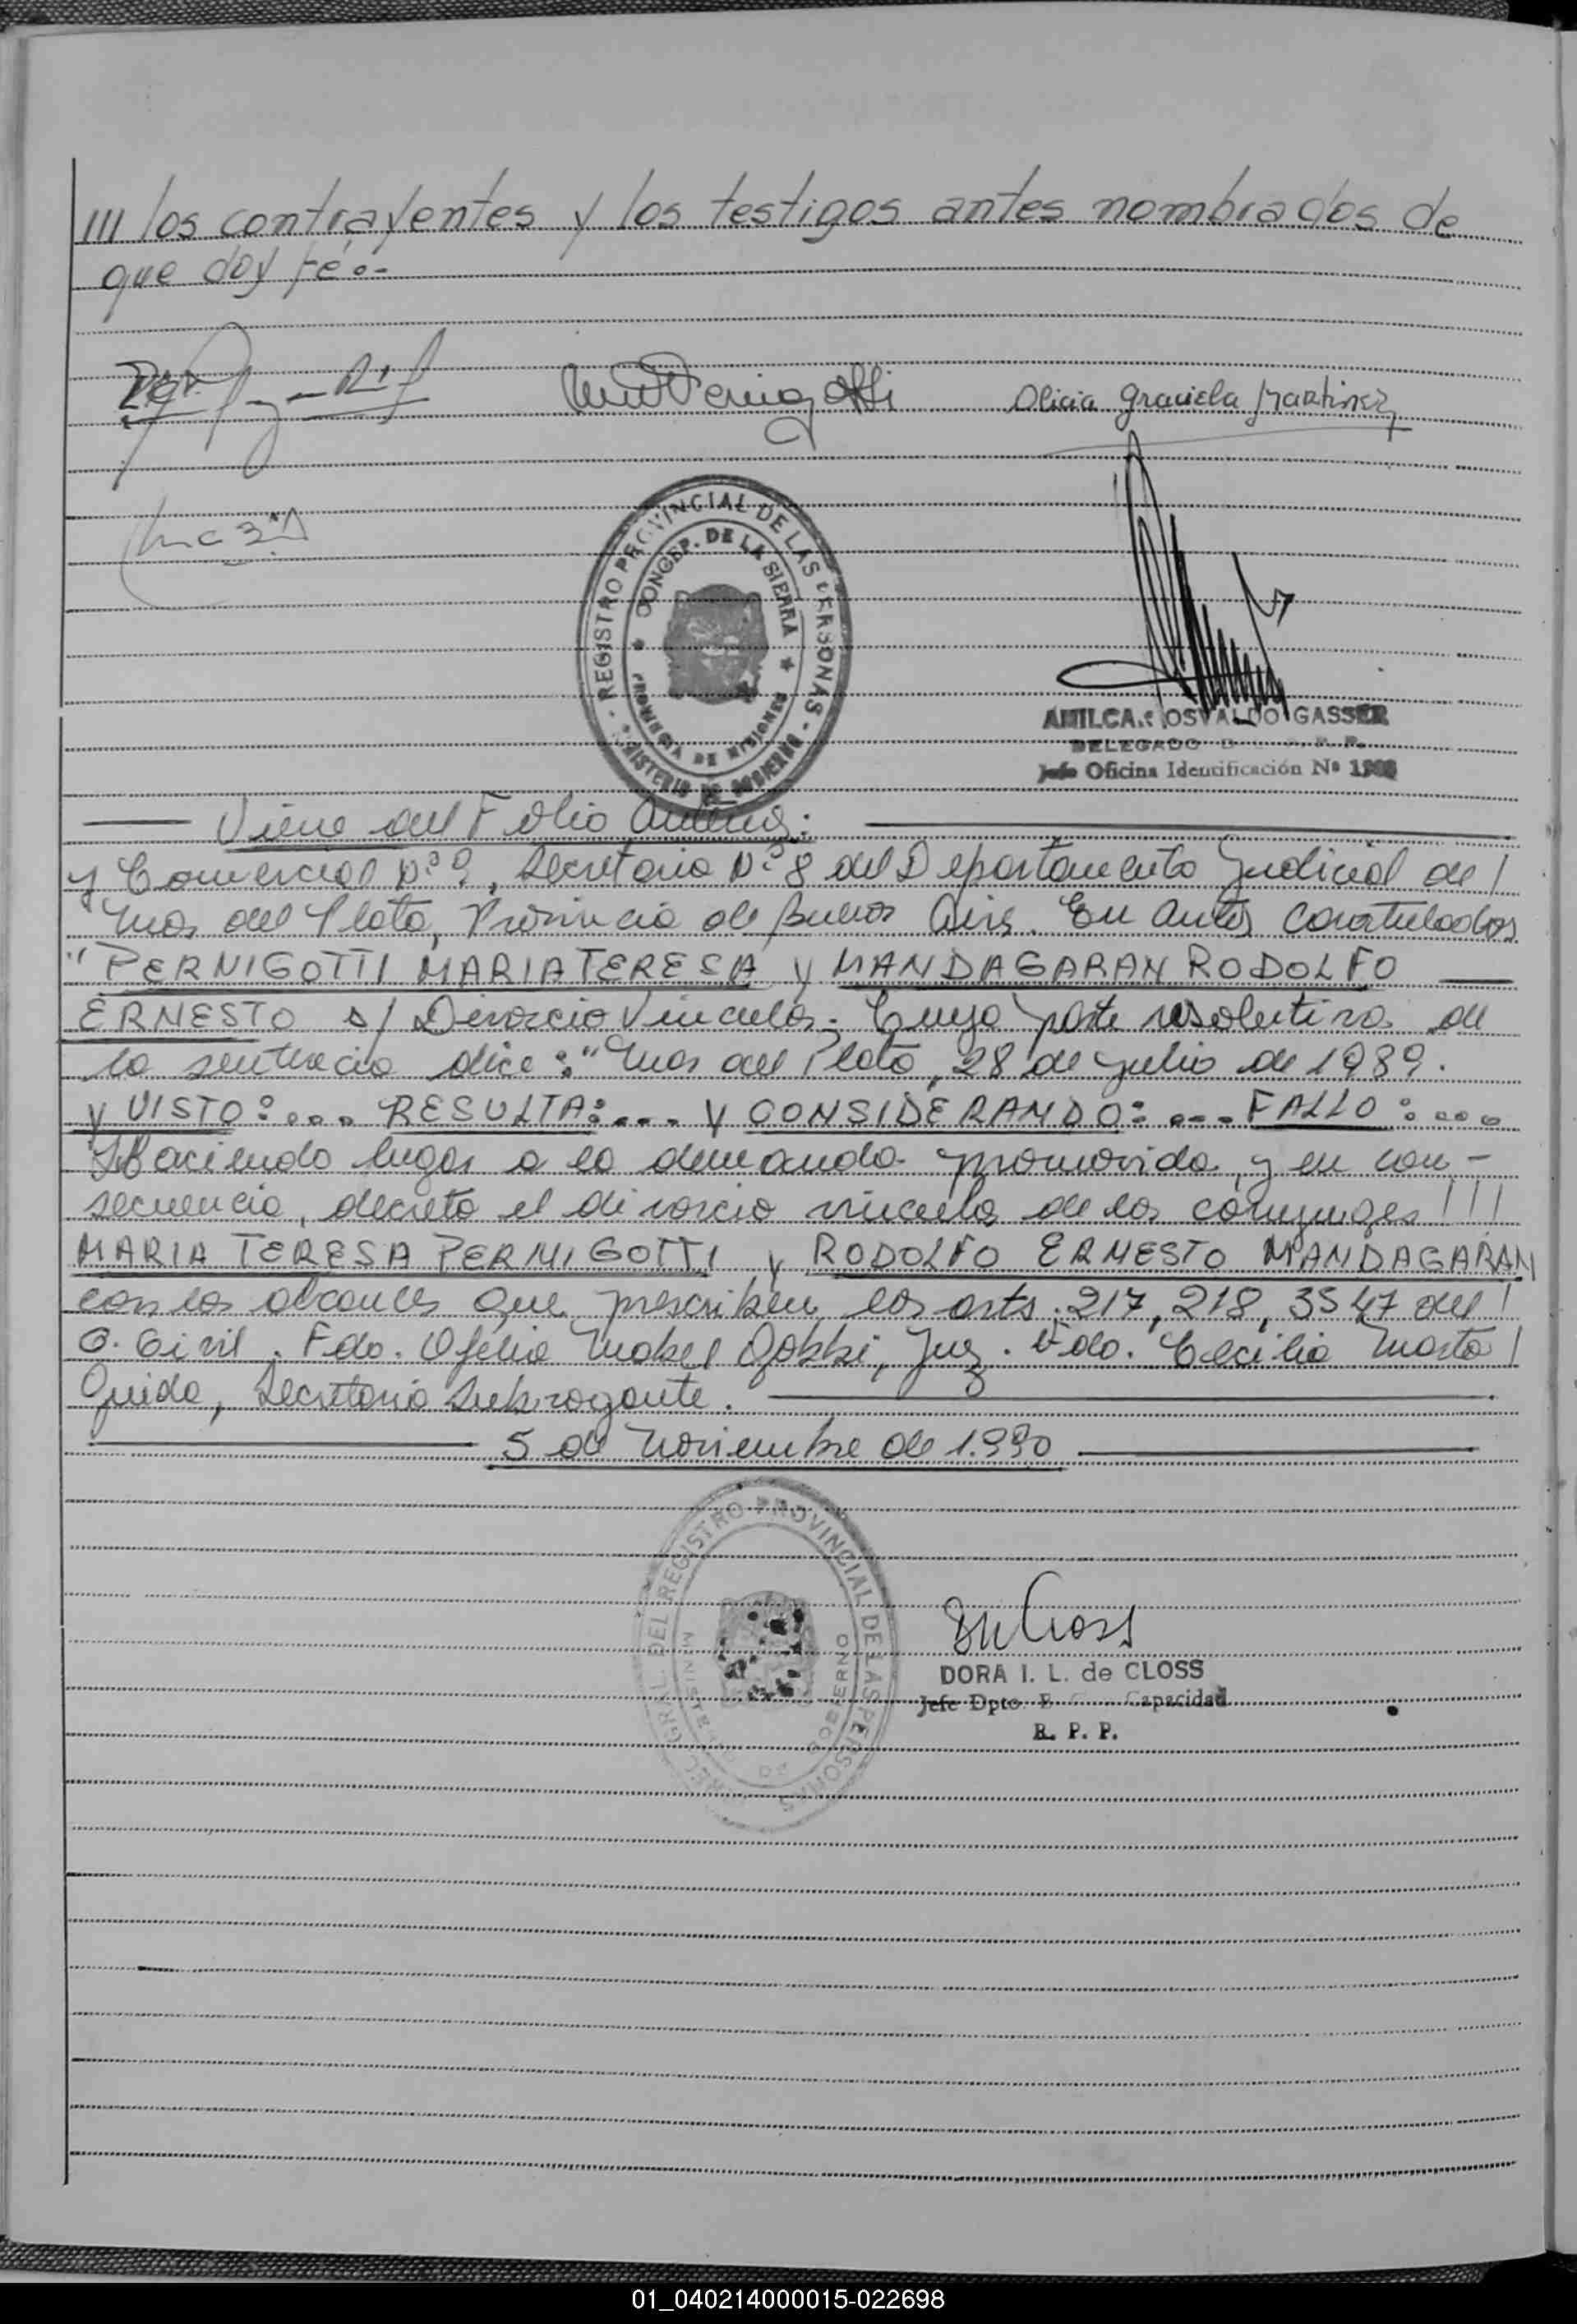 /// los contrayentes y los testigos antes nombrados de
que doy fé.-
Alicia Graciela Martinez
REGISTRO PROVINCIAL DE LAS PERSONAS
CONCEP. DE LA SIERRA
PROVINCIA DE MISIONES
MINISTERIO DE GOBIERNO
AMILCAR OSVALDO GASSER
DELEGADO R. P. P.
Jefe Oficina Identificación Nº
Viene del Folio Anterior:
y Comercial Nº 9, Secretaria Nº 8 del Departamento Judicial de /
Mar del Plata, Provincia de Buenos Aires. En autos caratulados
"PERNIGOTTI MARIA TERESA y MANDAGARAN RODOLFO
ERNESTO s/ Divorcio Vincular. Cuya parte resolutiva de
la sentencia dice: "Mar del Plata, 28 de Julio de 1989.
y VISTO:... RESULTA:... y CONSIDERANDO:... FALLO:...
Haciendo lugar a la demanda promovida, y en con-
secuencia, decreto el divorcio vincular de los cónyuges ///
MARIA TERESA PERNIGOTTI y RODOLFO ERNESTO MANDAGARAN
con los alcances que prescriben los arts. 217, 218, 3547 del /
C. Civil. Fdo. Ofelia Mabel Juez. Fdo. Cecilia Marta /
Guida, Secretaria Subrogante.
5 de Noviembre de 1.990
DIREC. GRAL. DEL REGISTRO PROVINCIAL DE LAS PERSONAS
MINISTERIO DE GOBIERNO
DORA I. L. de CLOSS
Jefe Dpto. E Capacidad
R. P. P.
01_040214000015-022698